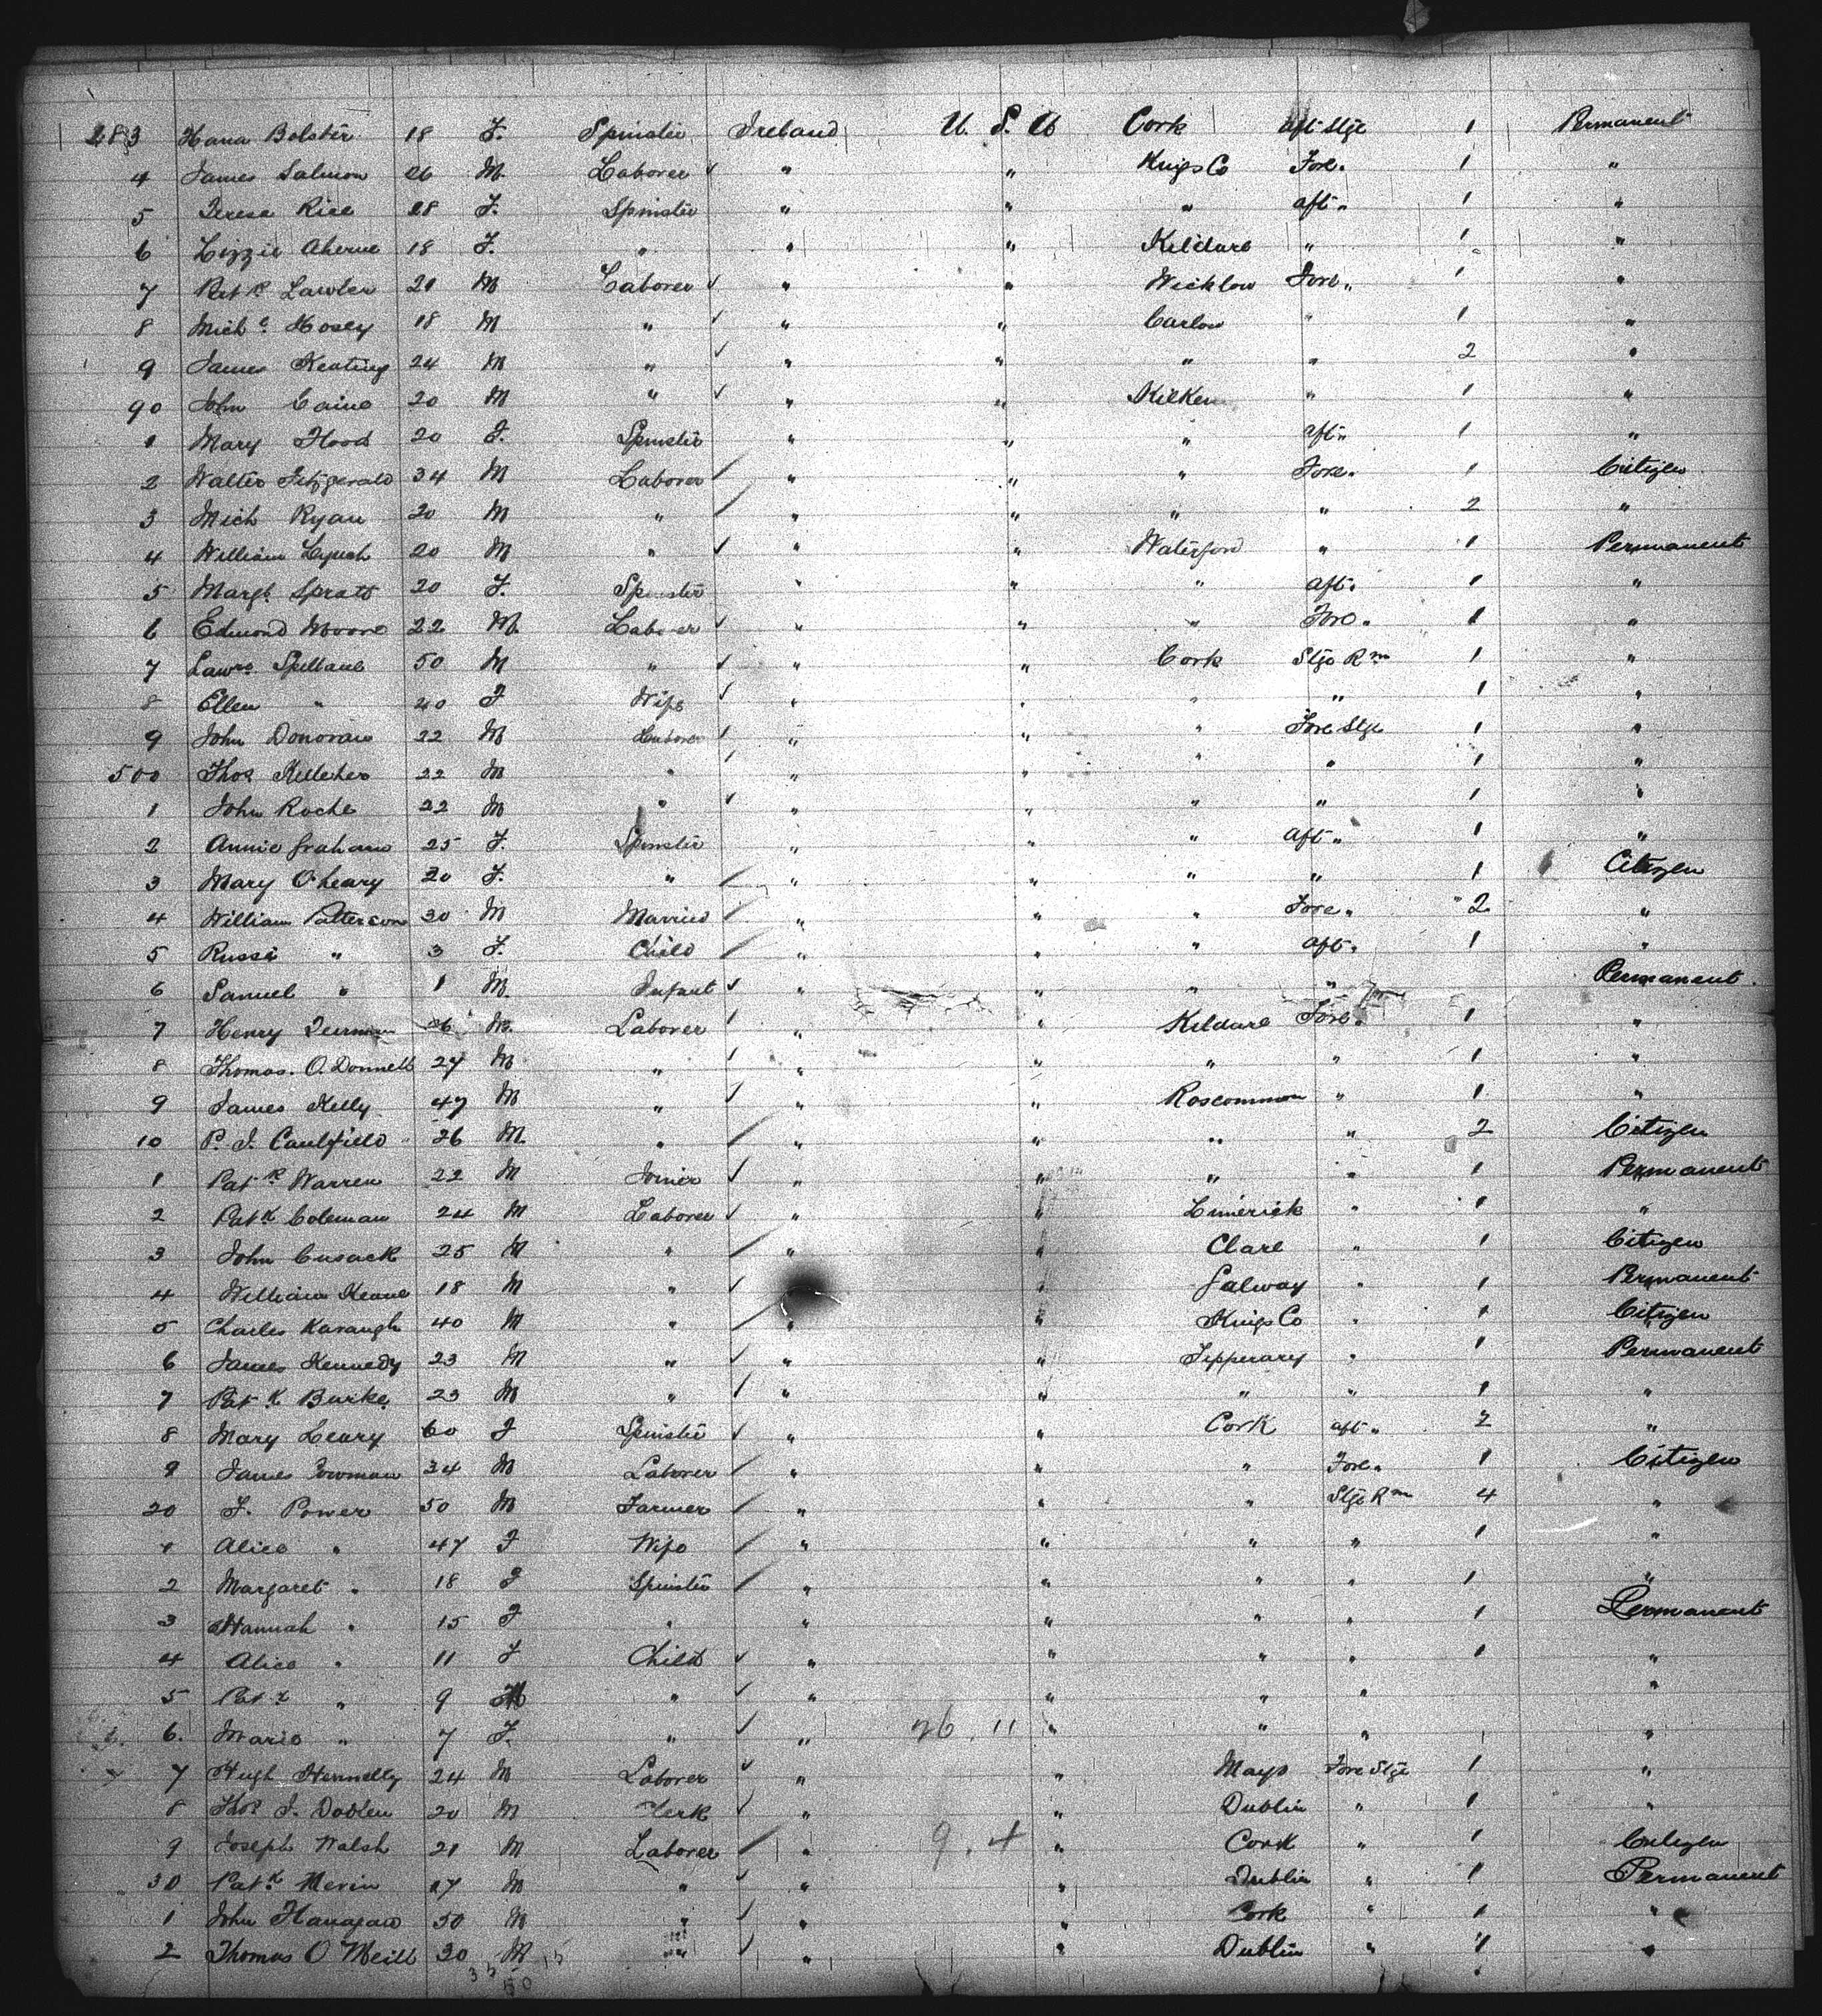 483 Hana Bolster 18 F. Spinster Ireland U. S. A Cork aft Stge 1 Permanent
4 James Salmon 26 M. Laborer ✓ " " Kings Co Fore " 1 "
5 Teresa Rice 28 F. Spinster " " " aft " 1 "
6 Lizzie Aherne 18 F. " " " Kildare " 1 "
7 Patk Lawler 21 M Laborer ✓ " " Wicklow Fore " 1 "
8 Michl Hosey 18 M " ✓ " " Carlow " 1 "
9 James Keating 24 M " ✓ " " " " 2 "
90 John Caine 20 M " ✓ " " Kilken " 1 "
1 Mary Flood 20 F. Spinster " " " aft " 1 "
2 Walter Fitzgerald 34 M Laborer / " " " Fore " 1 Citizen
3 Mich Ryan 20 M " / " " " " 2 "
4 William Lynch 20 M " ✓ " " Waterford " 1 Permanent
5 Margt Spratt 20 F. Spinster " " " aft " 1 "
6 Edmond Moore 22 M. Laborer ✓ " " " Fore " 1 "
7 Lawre Spillane 50 M " ✓ " " Cork Stge Rm 1 "
8 Ellen " 40 F Wife ✓ " " " " 1 "
9 John Donovan 22 M Laborer ✓ " " " Fore Stge 1 "
500 Thos Kelleher 22 M " ✓ " " " " 1 "
1 John Roche 22 M " ✓ " " " " 1 "
2 Annie Graham 25 F. Spinster " " " aft " 1 "
3 Mary O'Leary 20 F. " / " " " " 1 Citizen
4 William Patterson 30 M Married / " " " Fore " 2 "
5 " 3 F. Child / " " " aft " 1 "
6 Samuel " 1 M. Infant ✓ " " " " Permanent
7 Henry 26 M. Laborer ✓ " " Kildare Fore " 1 "
8 Thomas. O. Donnell 27 M " ✓ " " " " 1 "
9 James Kelly 47 M " ✓ " " Roscommon " 1 "
10 P. J. Caulfield 26 M. " / " " " " 2 Citizen
1 Patk Warren 22 M Joiner ✓ " " " " 1 Permanent
2 Patk Coleman 24 M Laborer ✓ " " Limerick " 1 "
3 John Cusack 25 M " / " " Clare " 1 Citizen
4 William Keane 18 M " ✓ " Galway " 1 Permanent
5 Charles Kavangh 40 M " / " " Kings Co " 1 Citizen
6 James Kennedy 23 M " ✓ " " Tipperary " 1 Permanent
7 Patk Burke 23 M " ✓ " " " " 1 "
8 Mary Leary 60 F Spinster ✓ " " Cork aft " 2 "
9 James 34 M Laborer / " " " Fore " 1 Citizen
20 J. Power 50 M Farmer / " " " Stge Rm 4 "
1 Alice " 47 F Wife / " " " " 1 "
2 Margaret " 18 F Spinster / " " " " 1 "
3 Hannah " 15 F " " " " " 1 Permanent
4 Alice " 11 F Child ✓ " " " " 1 "
5 Patk " 9 M " ✓ " " " " "
6. Marie " 7 F. " ✓ " 26. 11 " " " 1 "
7 Hugh Hennelly 24 M Laborer ✓ " " Mayo Fore Stge 1 "
8 Thos J. 20 M Clerk ✓ " " Dublin " 1 "
9 Joseph Walsh 21 M Laborer / " 9. 4 " Cork " 1 Citizen
30 Patk Nevin 27 M " ✓ " " Dublin " 1 Permanent
1 John Flanagan 50 M " ✓ " " Cork " 1 "
2 Thomas O'Neill 30 M " ✓ " " Dublin " 1 "